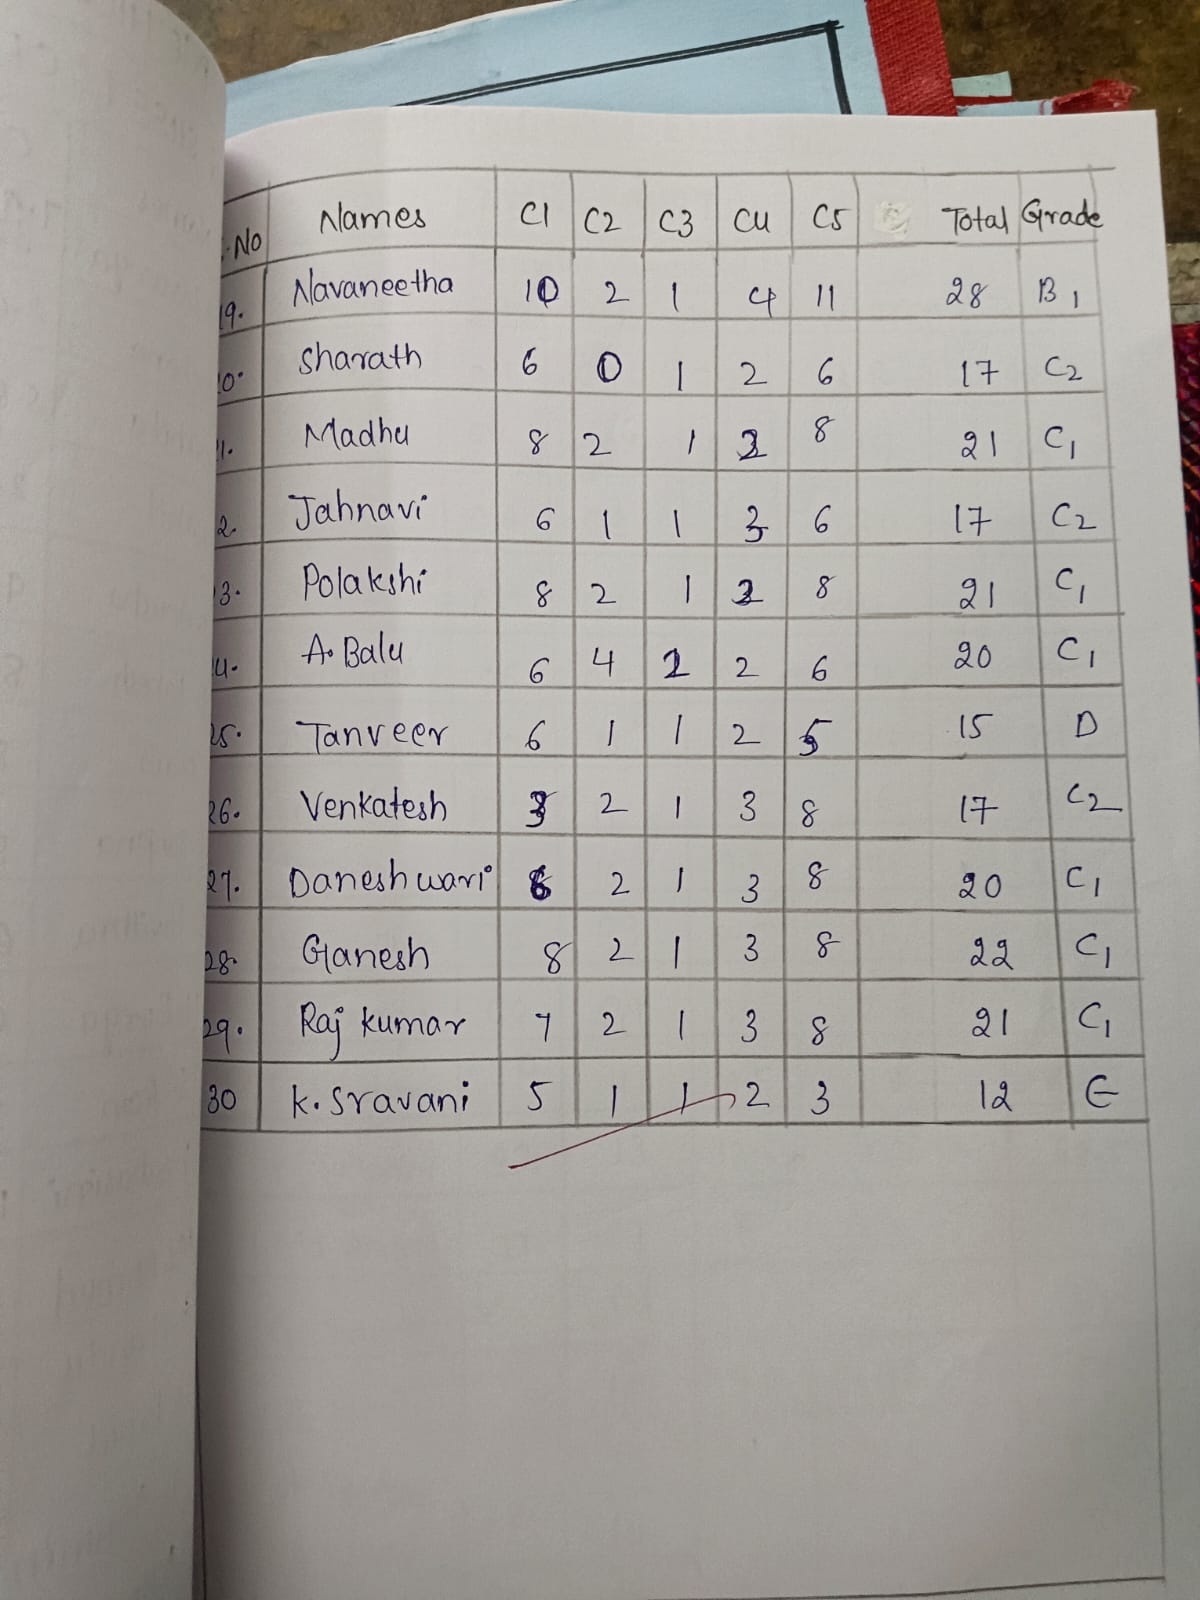 .No Names C1 C2 C3 C4 C5 Total Grade
19. Navaneetha 10 2 1 4 11 28 B1
20. Sharath 6 0 1 2 6 17 C2
1. Madhu 8 2 1 2 8 21 C1
2. Jahnavi 6 1 1 3 6 17 C2
3. Polakshi 8 2 1 2 8 21 C1
4. A. Balu 6 4 2 2 6 20 C1
25. Tanveer 6 1 1 2 5 15 D
26. Venkatesh 3 2 1 3 8 17 C2
27. Daneshwari 6 2 1 3 8 20 C1
28. Ganesh 8 2 1 3 8 22 C1
29. Raj kumar 7 2 1 3 8 21 C1
30 K. Sravani 5 1 1 2 3 12 E